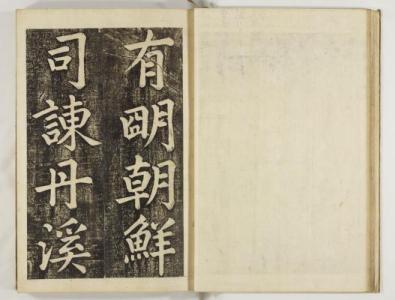 有明朝鮮
司諫丹溪